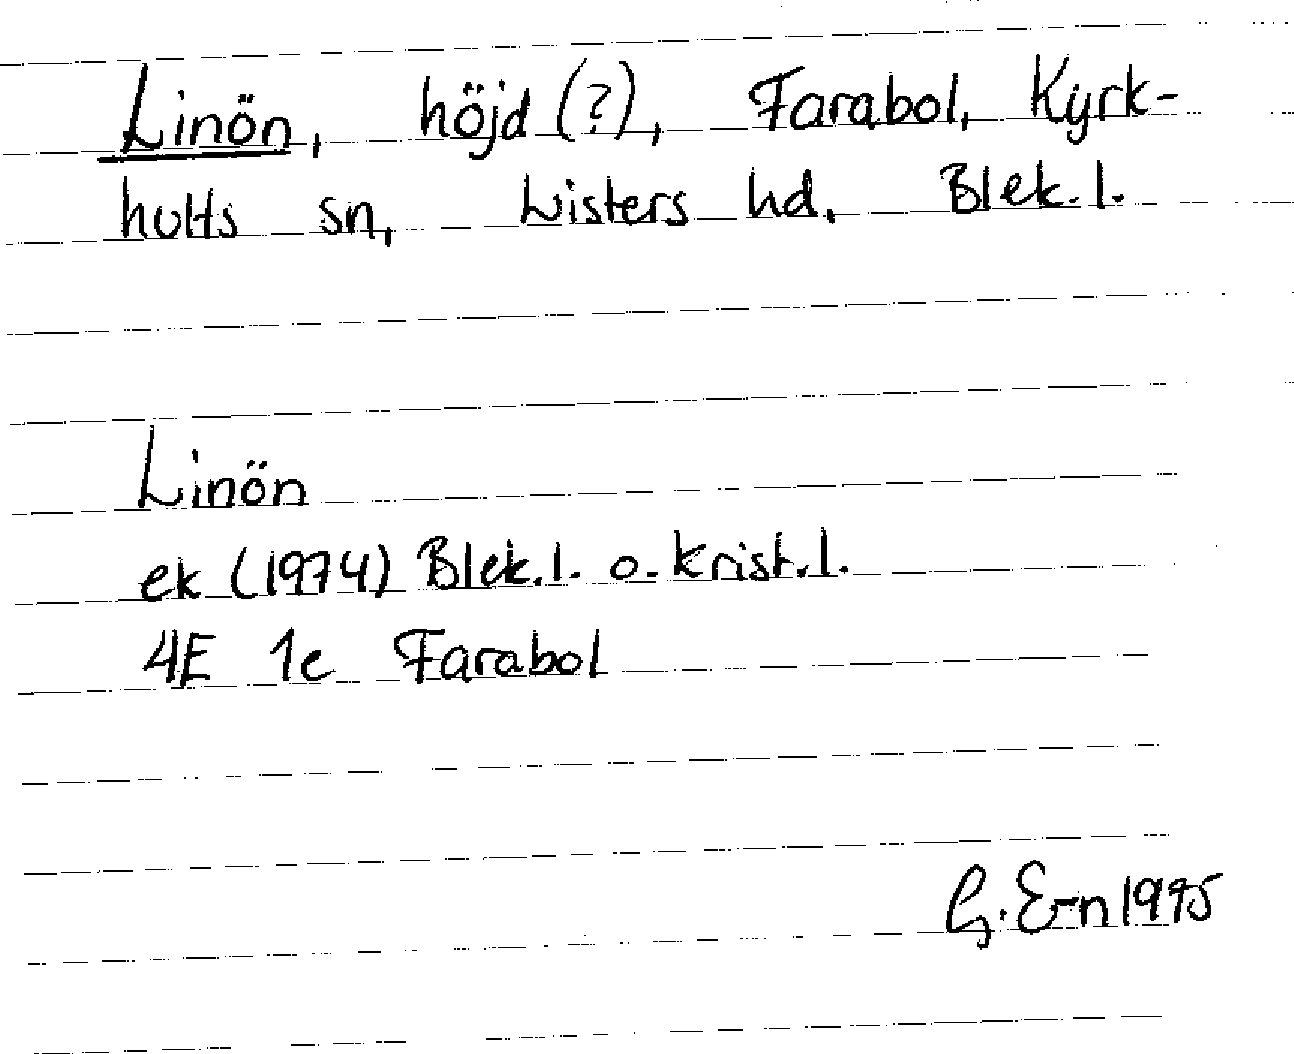 Linön, höjd (?), Farabol, Kyrk-
hults sn, Listers hd. Blek.l.
Linön
ek (1974) Blek.l. o. Krist.l.
4E 1e Farabol
G. Ern 1975